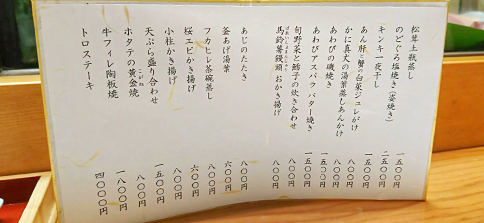 松茸土瓶蒸し 一五〇〇円
のどぐろ塩焼き(姿焼き) 二五〇〇円
キンキ一夜干し 一五〇〇円
あん肝と蟹の白菜ジュレがけ 八〇〇円
かに真丈の湯葉蒸しあんかけ 八〇〇円
あわびの磯焼き 一五〇〇円
あわびアスパラ バター焼き 一五〇〇円
旬野菜と鱈子の炊き合わせ 八〇〇円
馬鈴薯饅頭 おかき揚げ 八〇〇円
あじのたたき 八〇〇円
釜あげ湯葉 六〇〇円
フカヒレ茶碗蒸し 八〇〇円
桜エビかき揚げ 六〇〇円
小柱かき揚げ 八〇〇円
天ぷら盛り合わせ 一五〇〇円
ホタテの黄金焼 八〇〇円
牛フィレ陶板焼 一八〇〇円
トロステーキ 四〇〇〇円